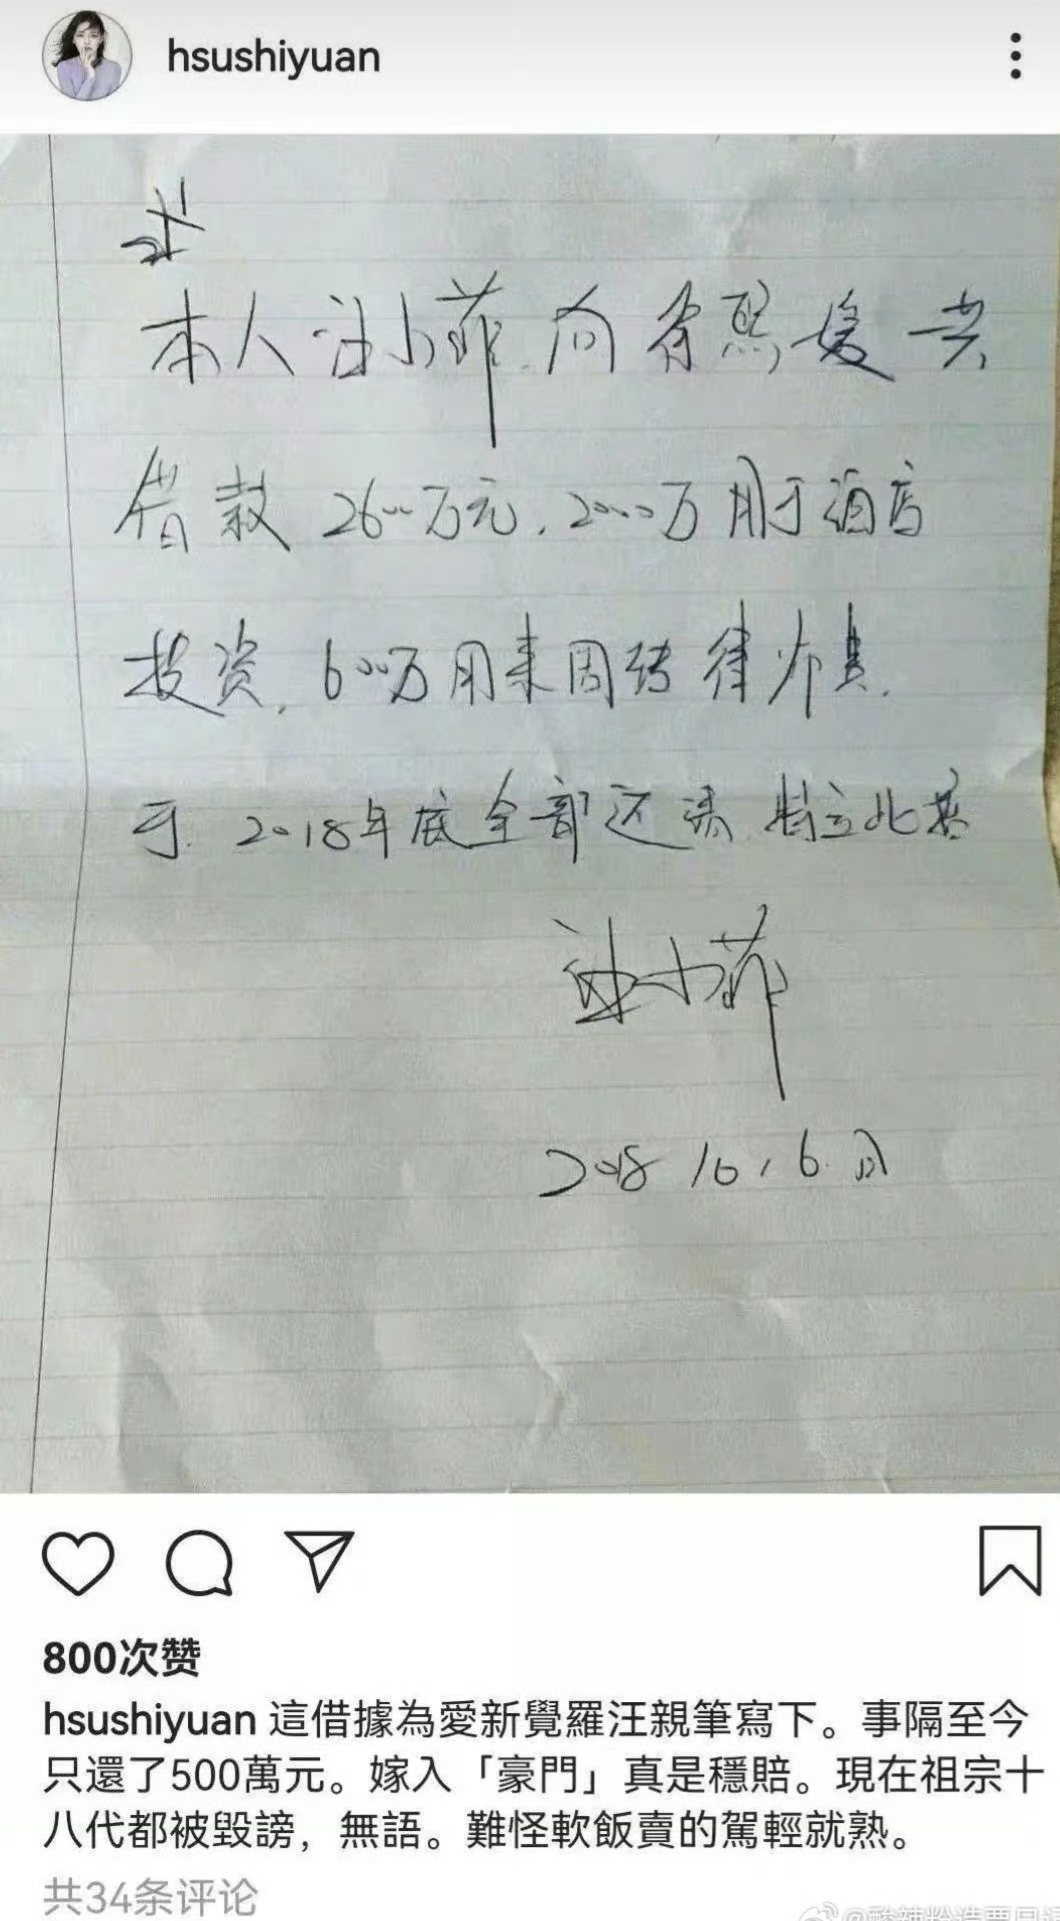 hsushiyuan
本人汪小菲向徐熙媛共
借款2600万元，2000万用于酒店
投资，600万用来周转律师费，
于2018年底全部还清 特立此据
汪小菲
2018 10，6日
800次赞
hsushiyuan 這借據為愛新覺羅汪親筆寫下。事隔至今
只還了500萬元。嫁入「豪門」真是穩賠。現在祖宗十
八代都被毀謗，無語。難怪軟飯賣的駕輕就熟。
共34条评论